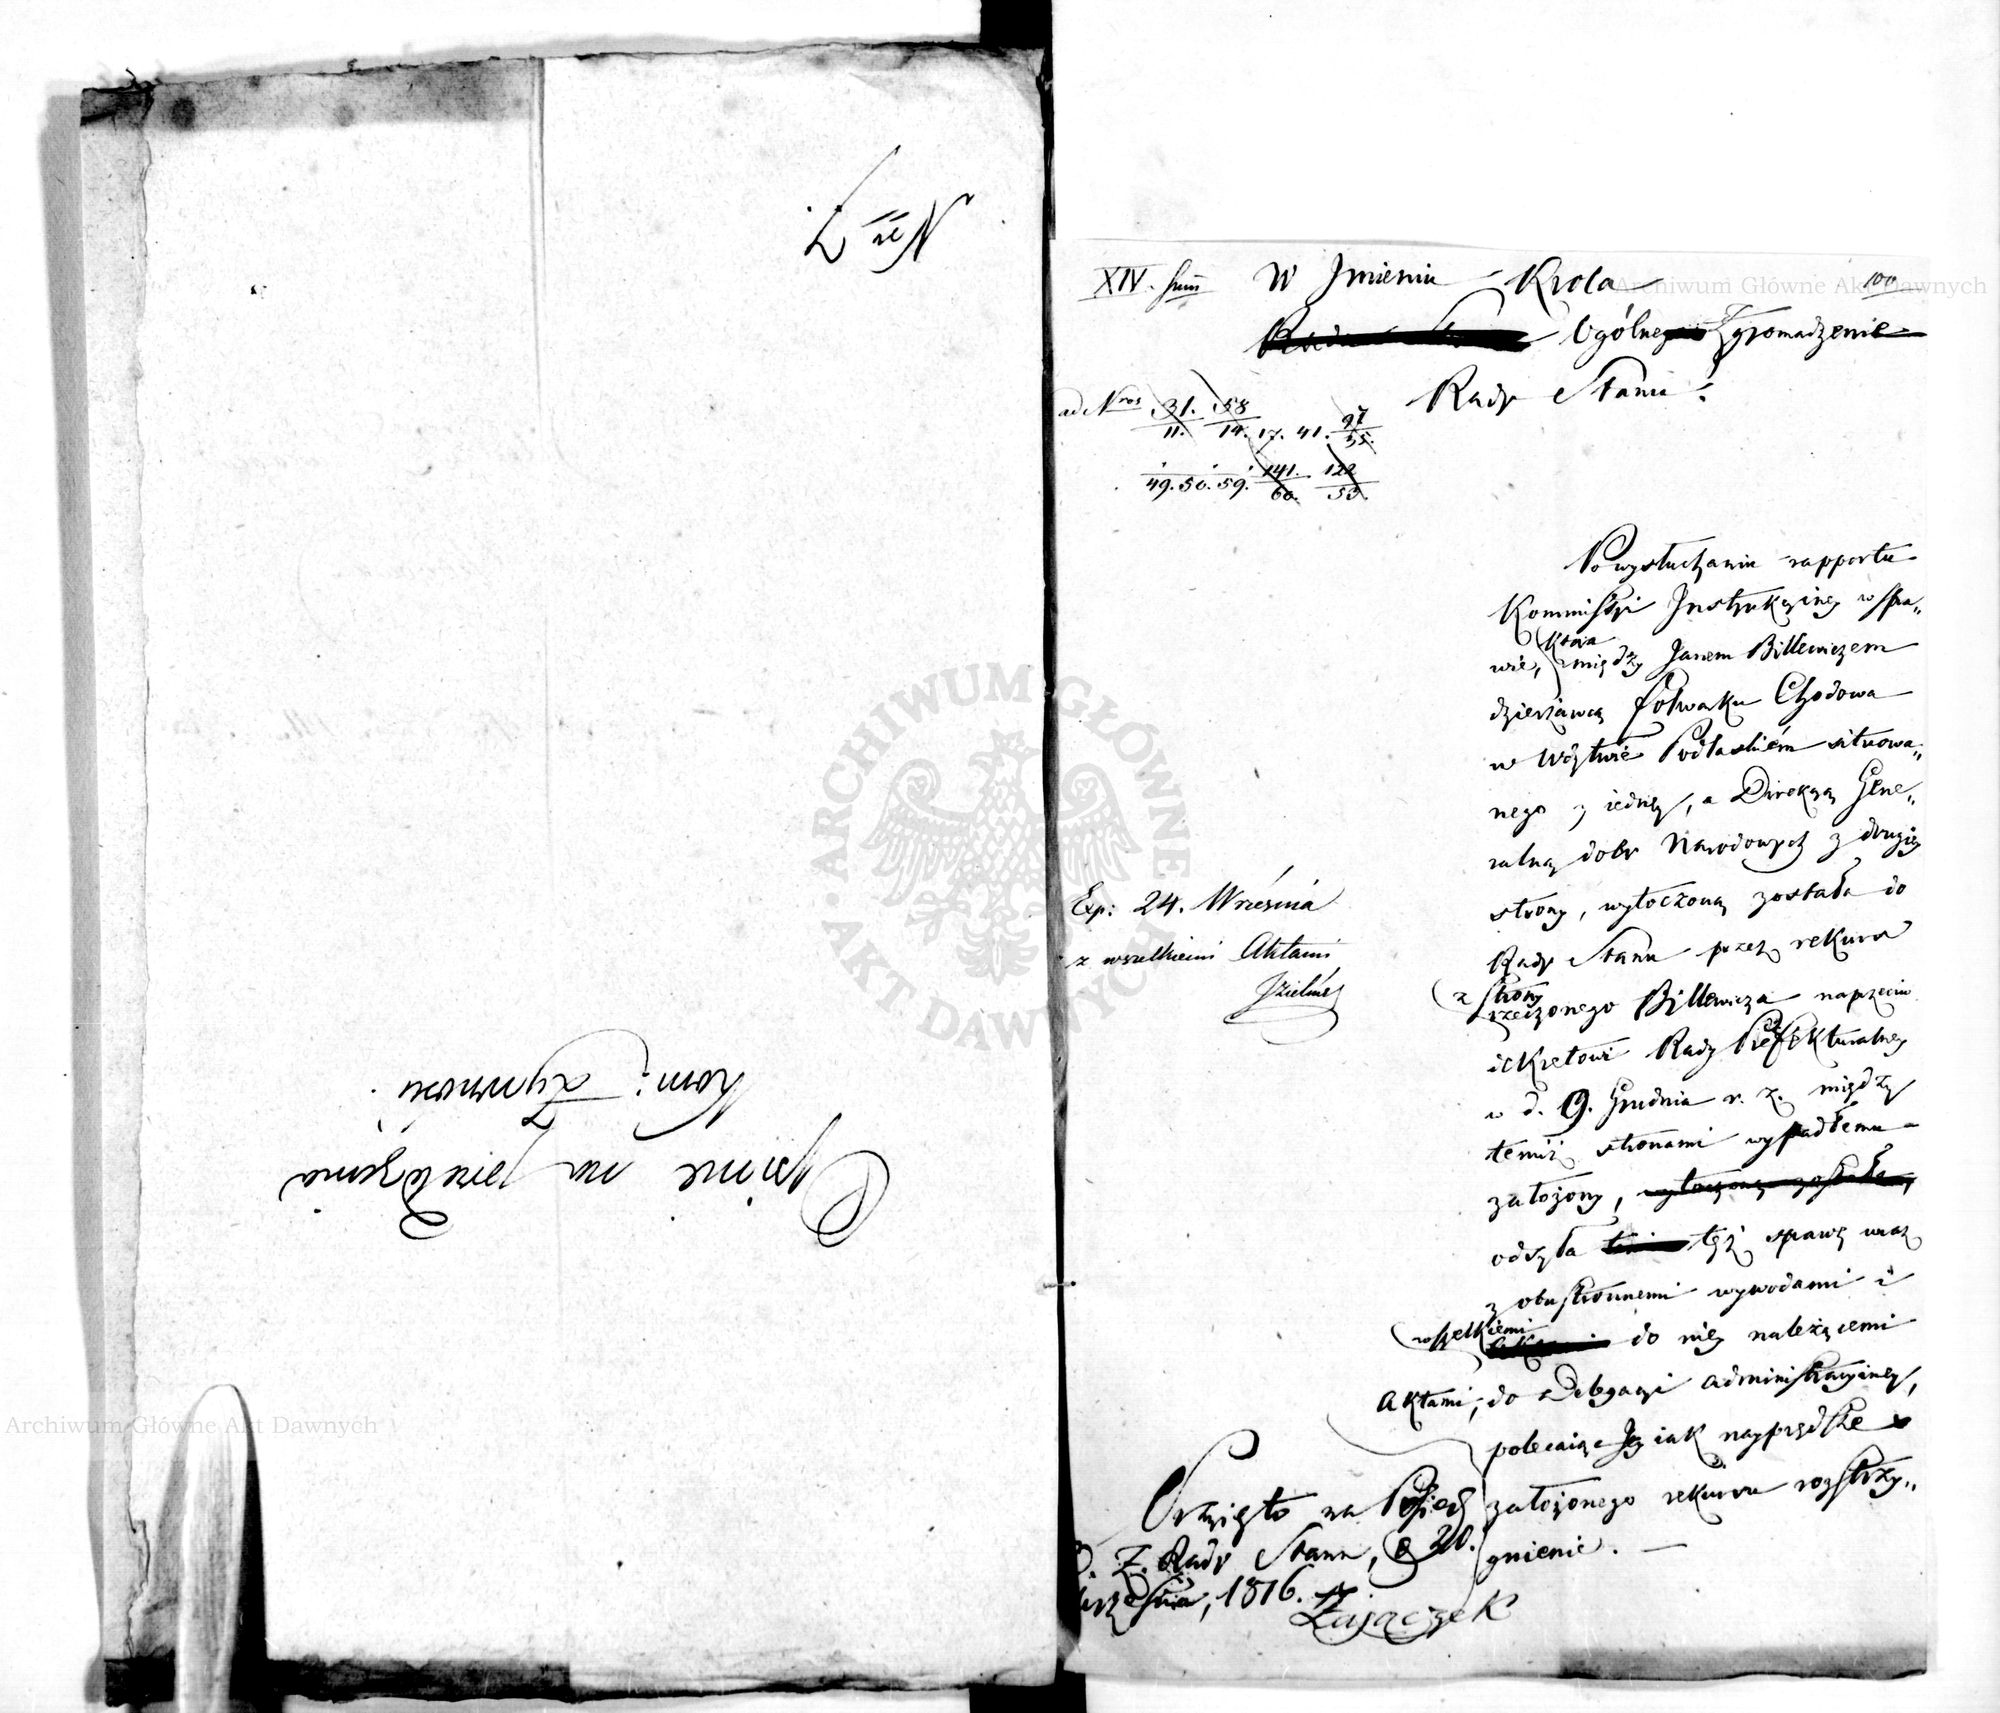 Nr 7
Opinie na przełożenie
Kom: Żywnośc
XIV. Sum W Jmieniu Krola 100
Rada Stanu Ogólne Zgromadzenie
Rady Stanu:
ad Nros 31. 58
11. 14. 17. 41. 97
55.
49. 50. 59. 141. 122
60. 53.
Po wysłuchaniu rapportu
Kommissyi Jnstrukcyiney w spra„
która
wie, między Janem Billewiczem
dzierżawcą folwarku Chodowa
w Wdztwie Podlaskiém situowa„
nego z iedney, a Dyrekcyą Gene„
ralną dobr Narodowych z drugiey
strony, wytoczoną została do
Rady Stanu przez rekurs
z strony
rzeczonego Billewicza naprzeciw
dekretowi Rady Prefekturalney
w d. 9. Grudnia r. z. między
temiż stronami wypadłemu
założony, wytoczoną została,
odsyła tęż sprawę wraz
z obustronnemi wywodami i
wszelkiemi
do niey należącemi
Aktami, do Delegacyi administracyiney,
polecaiąc Jey iak nayprędsze
założonego rekursu rozstrzy„
gnienie. —
Exp: 24. Września
z wszelkiemi Aktami
Przyięto na Posiedz
O. Z. Rady Stanu, d 20.
Września, 1816.
Zajączek
Archiwum Główne Akt Dawnych
Archiwum Główne Akt Dawnych
ARCHIWUM GŁÓWNE AKT DAWNYCH